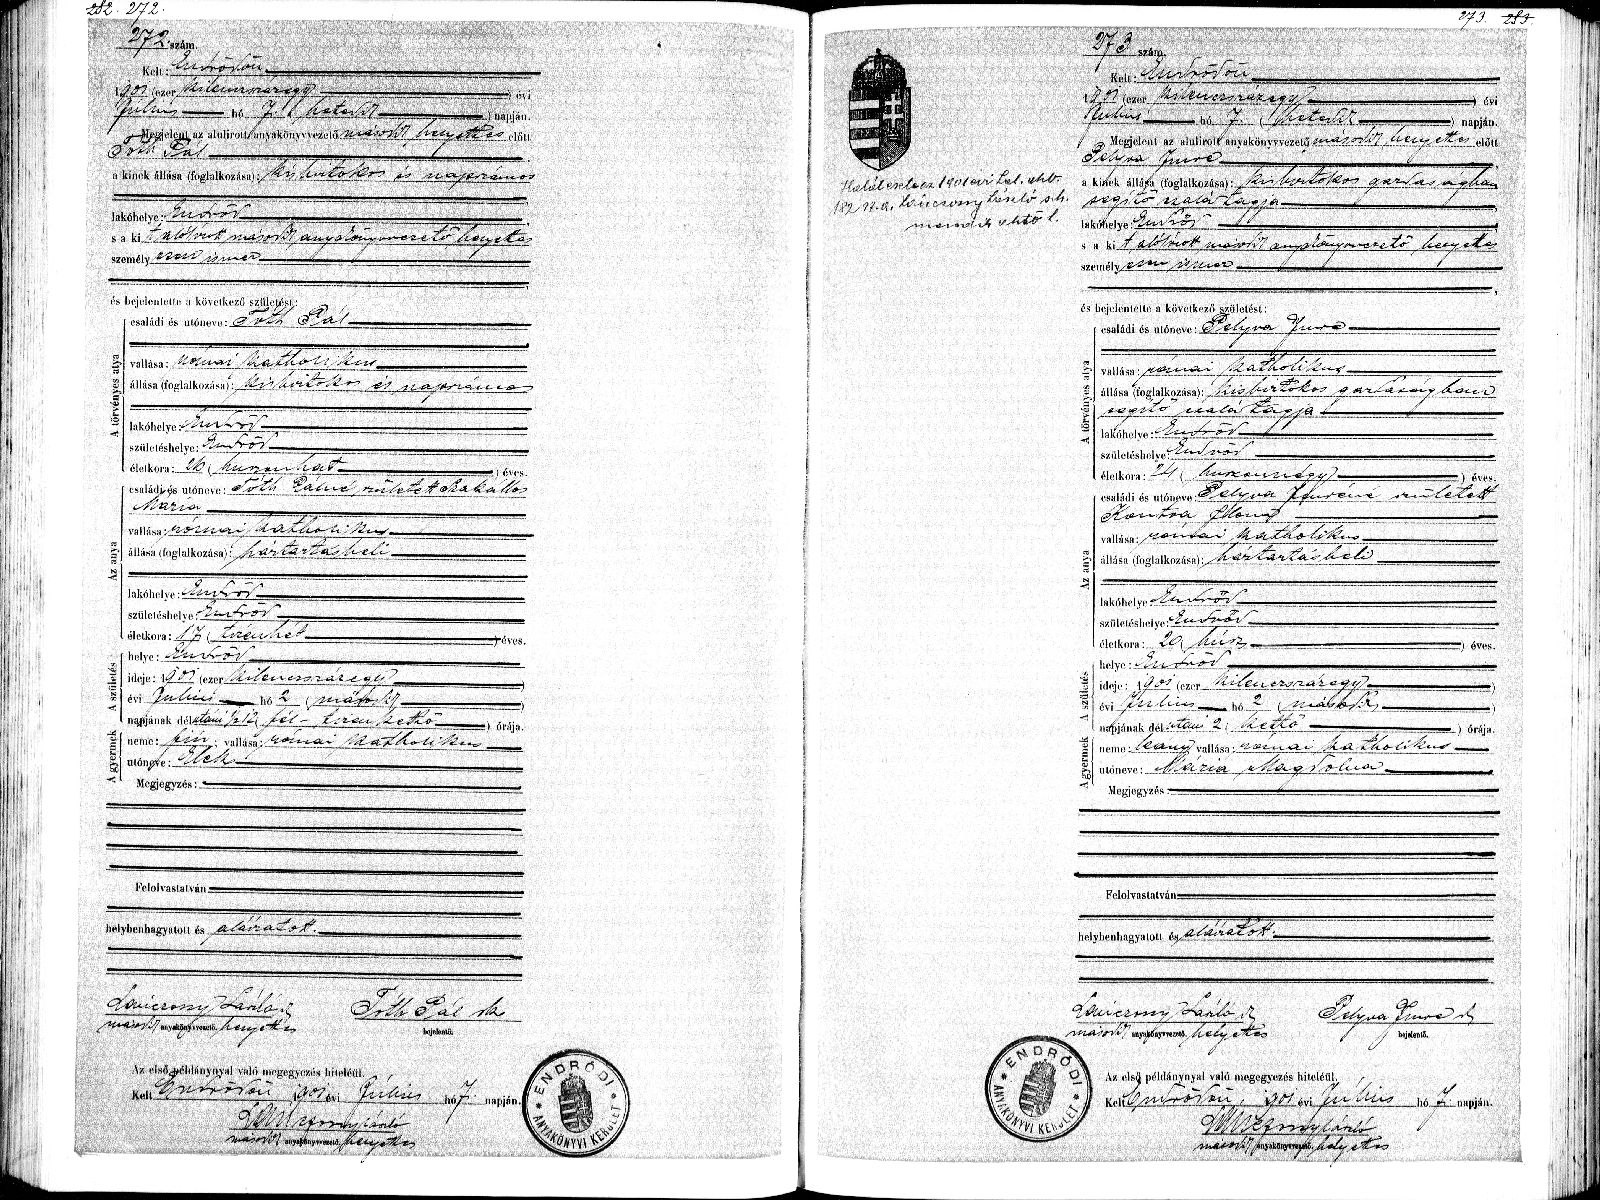 282. 272.
272. szám.
Kelt: Endrődön
1901 (ezer kilencszázegy) évi
Julius hó 7. (hetedik) napján.
Megjelent az alulirott anyakönyvvezető második helyettes előtt
Tóth Pál
a kinek állása (foglalkozása): kisbirtokos és napszámos
lakóhelye: Endrőd
s a kit alólirott második anyakönyvvezető helyettes
személyesen ismer
és bejelentette a következő születést:
A törvényes atya
családi és utóneve: Tóth Pál
vallása: római katholikus
állása (foglalkozása): kisbirtokos és napszámos
lakóhelye: Endrőd
születéshelye: Endrőd
életkora: 26 (huszonhat) éves.
Az anya
családi és utóneve: Tóth Pálné született Szakállos
Mária
vallása: római katholikus
állása (foglalkozása): háztartásbeli
lakóhelye: Endrőd
születéshelye: Endrőd
életkora: 17 (tizenhét) éves.
A születés
helye: Endrőd
ideje: 1901 (ezer kilencszázegy)
évi Julius hó 2 (második)
napjának délutáni 1/2 12 (fél-tizenkettő) órája.
A gyermek
neme: fiú; vallása: római katholikus
utóneve: Elek
Megjegyzés:
Felolvastatván
helybenhagyatott és aláiratott.
Lauiczony László s.k. Tóth Pál sk
második anyakönyvvezető. helyettes bejelentő.
Az első példánynyal való megegyezés hiteléül.
Kelt Endrődön 1901 évi Július hó 7. napján.
második anyakönyvvezető. helyettes
ENDRŐDI
ANYAKÖNYVI KERÜLET
273. 283.
273 szám.
Kelt: Endrődön
1901 (ezer kilencszázegy) évi
Julius hó 7 (hetedik) napján.
Megjelent az alulirott anyakönyvvezető második helyettes előtt
Pelyva Imre
a kinek állása (foglalkozása): kisbirtokos gazdaságban
segitő család tagja
lakóhelye: Endrőd
s a kit alólirott második anyakönyvvezető helyettes
személyesen ismer
Halálesete az 1901 évi hal. akb.
182 sz. a. László s.k.
második
és bejelentette a következő születést:
A törvényes atya
családi és utóneve: Pelyva Imre
vallása: római katholikus
állása (foglalkozása): kisbirtokos gazdaságban
segitő család tagja
lakóhelye: Endrőd
születéshelye: Endrőd
életkora: 24 (huszonnégy) éves.
Az anya
családi és utóneve: Pelyva Imréné született
Kontra Ilona
vallása: római katholikus
állása (foglalkozása): háztartásbeli
lakóhelye: Endrőd
születéshelye: Endrőd
életkora: 20 (húsz) éves.
A születés
helye: Endrőd
ideje: 1901 (ezer kilencszázegy)
évi Julius hó 2 (második)
napjának délutáni 2 (kettő) órája.
A gyermek
neme: leány vallása: római katholikus
utóneve: Mária Magdolna
Megjegyzés:
Felolvastatván
helybenhagyatott és aláiratott.
László s.k. Pelyva Imre sk
második anyakönyvvezető, helyettes bejelentő.
Az első példánynyal való megegyezés hiteléül.
Kelt Endrődön, 1901 évi Július hó 7. napján.
második anyakönyvvezető, helyettes
ENDRŐDI
ANYAKÖNYVI KERÜLET